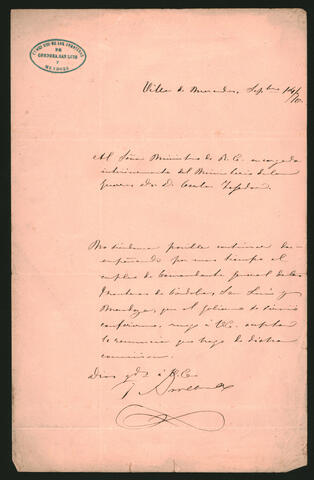 CORDOBA, SAN LUIS
Y
MENDOZA
Villa de Mercedes, Septbre 14/70
Al Señor Ministro de R. E. encargado
interinamente del Ministerio de la
Guerra Dor D. Carlos Tejedor.
No siendome posible continuar des-
empeñando por mas tiempo el
empleo de Comandante General de las
Fronteras de Córdoba, San Luis y
Mendoza, que el Gobierno se sirvió
conferirme, ruego á V.E. aceptar
la renuncia que hago de dicha
comision.
Dios gde á V.E.